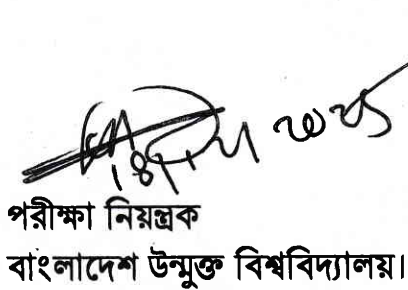 পরীক্ষা নিয়ন্ত্রক
বাংলাদেশ উন্মুক্ত বিশ্ববিদ্যালয়।